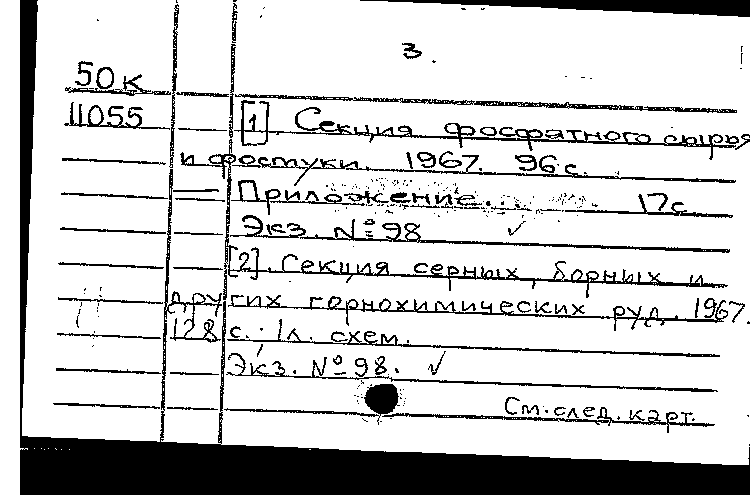 3.
50к
11055
[1]. Секция фосфатного сырья
и фостуки. 1967. 96 с.
— Приложение. 17с
Экз. № 98 ✓
[2]. Секция серных, борных и
других горнохимических руд. 1967.
128 с.; 1л. схем.
Экз. № 98. ✓
См. след. карт.